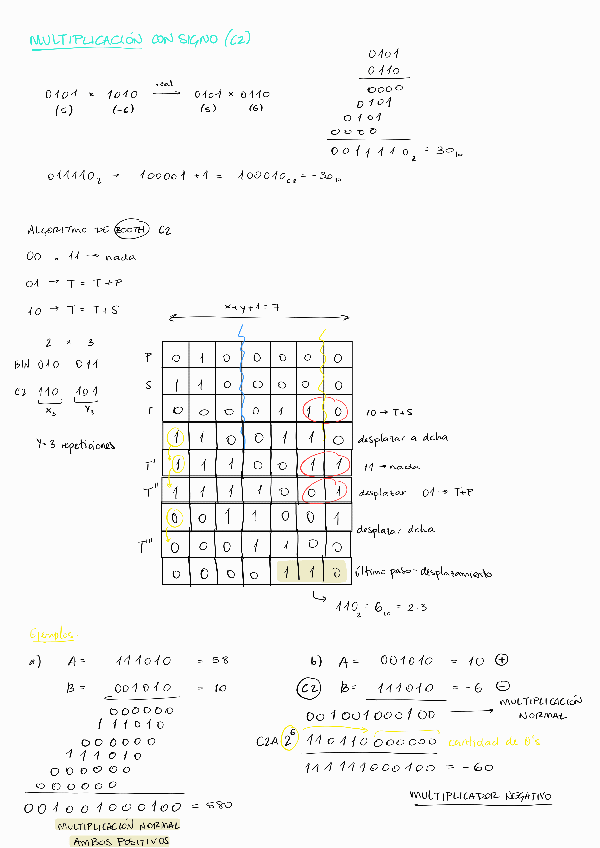 MULTIPLICACIÓN CON SIGNO (C2)
0101 × 1010 real 0101 × 0110
(5) (-6) (5) (6)
0101
0110
0000
0101
0101
0000
0011110₂ = 30₁₀
011110₂ → 100001 + 1 = 100010 C2 = -30₁₀
ALGORITMO DE BOOTH C2
00 o 11 → nada
01 → T = T+P
10 → T = T+S
2 × 3
BIN 010 011
C2 110 101
X₃ Y₃
Y=3 repeticiones
x+y+1 = 7
P 0 1 0 0 0 0 0
S 1 1 0 0 0 0 0
T 0 0 0 0 1 1 0 10 → T+S
1 1 0 0 1 1 0 desplazar a dcha
T' 1 1 1 0 0 1 1 11 → nada
T'' 1 1 1 1 0 0 1 desplazar 01 → T+P
0 0 1 1 0 0 1
desplazar dcha
T''' 0 0 0 1 1 0 0
0 0 0 0 1 1 0 último paso - desplazamiento
110₂ = 6₁₀ = 2·3
Ejemplos
a) A = 111010 = 58
B = 001010 = 10
000000
111010
000000
111010
000000
000000
001001000100 = 580
MULTIPLICACIÓN NORMAL
AMBOS POSITIVOS
b) A = 001010 = 10 +
C2 B = 111010 = -6 -
001001000100 → MULTIPLICACIÓN NORMAL
C2A 2⁶ 110110000000 cantidad de 0's
111111000100 = -60
MULTIPLICADOR NEGATIVO